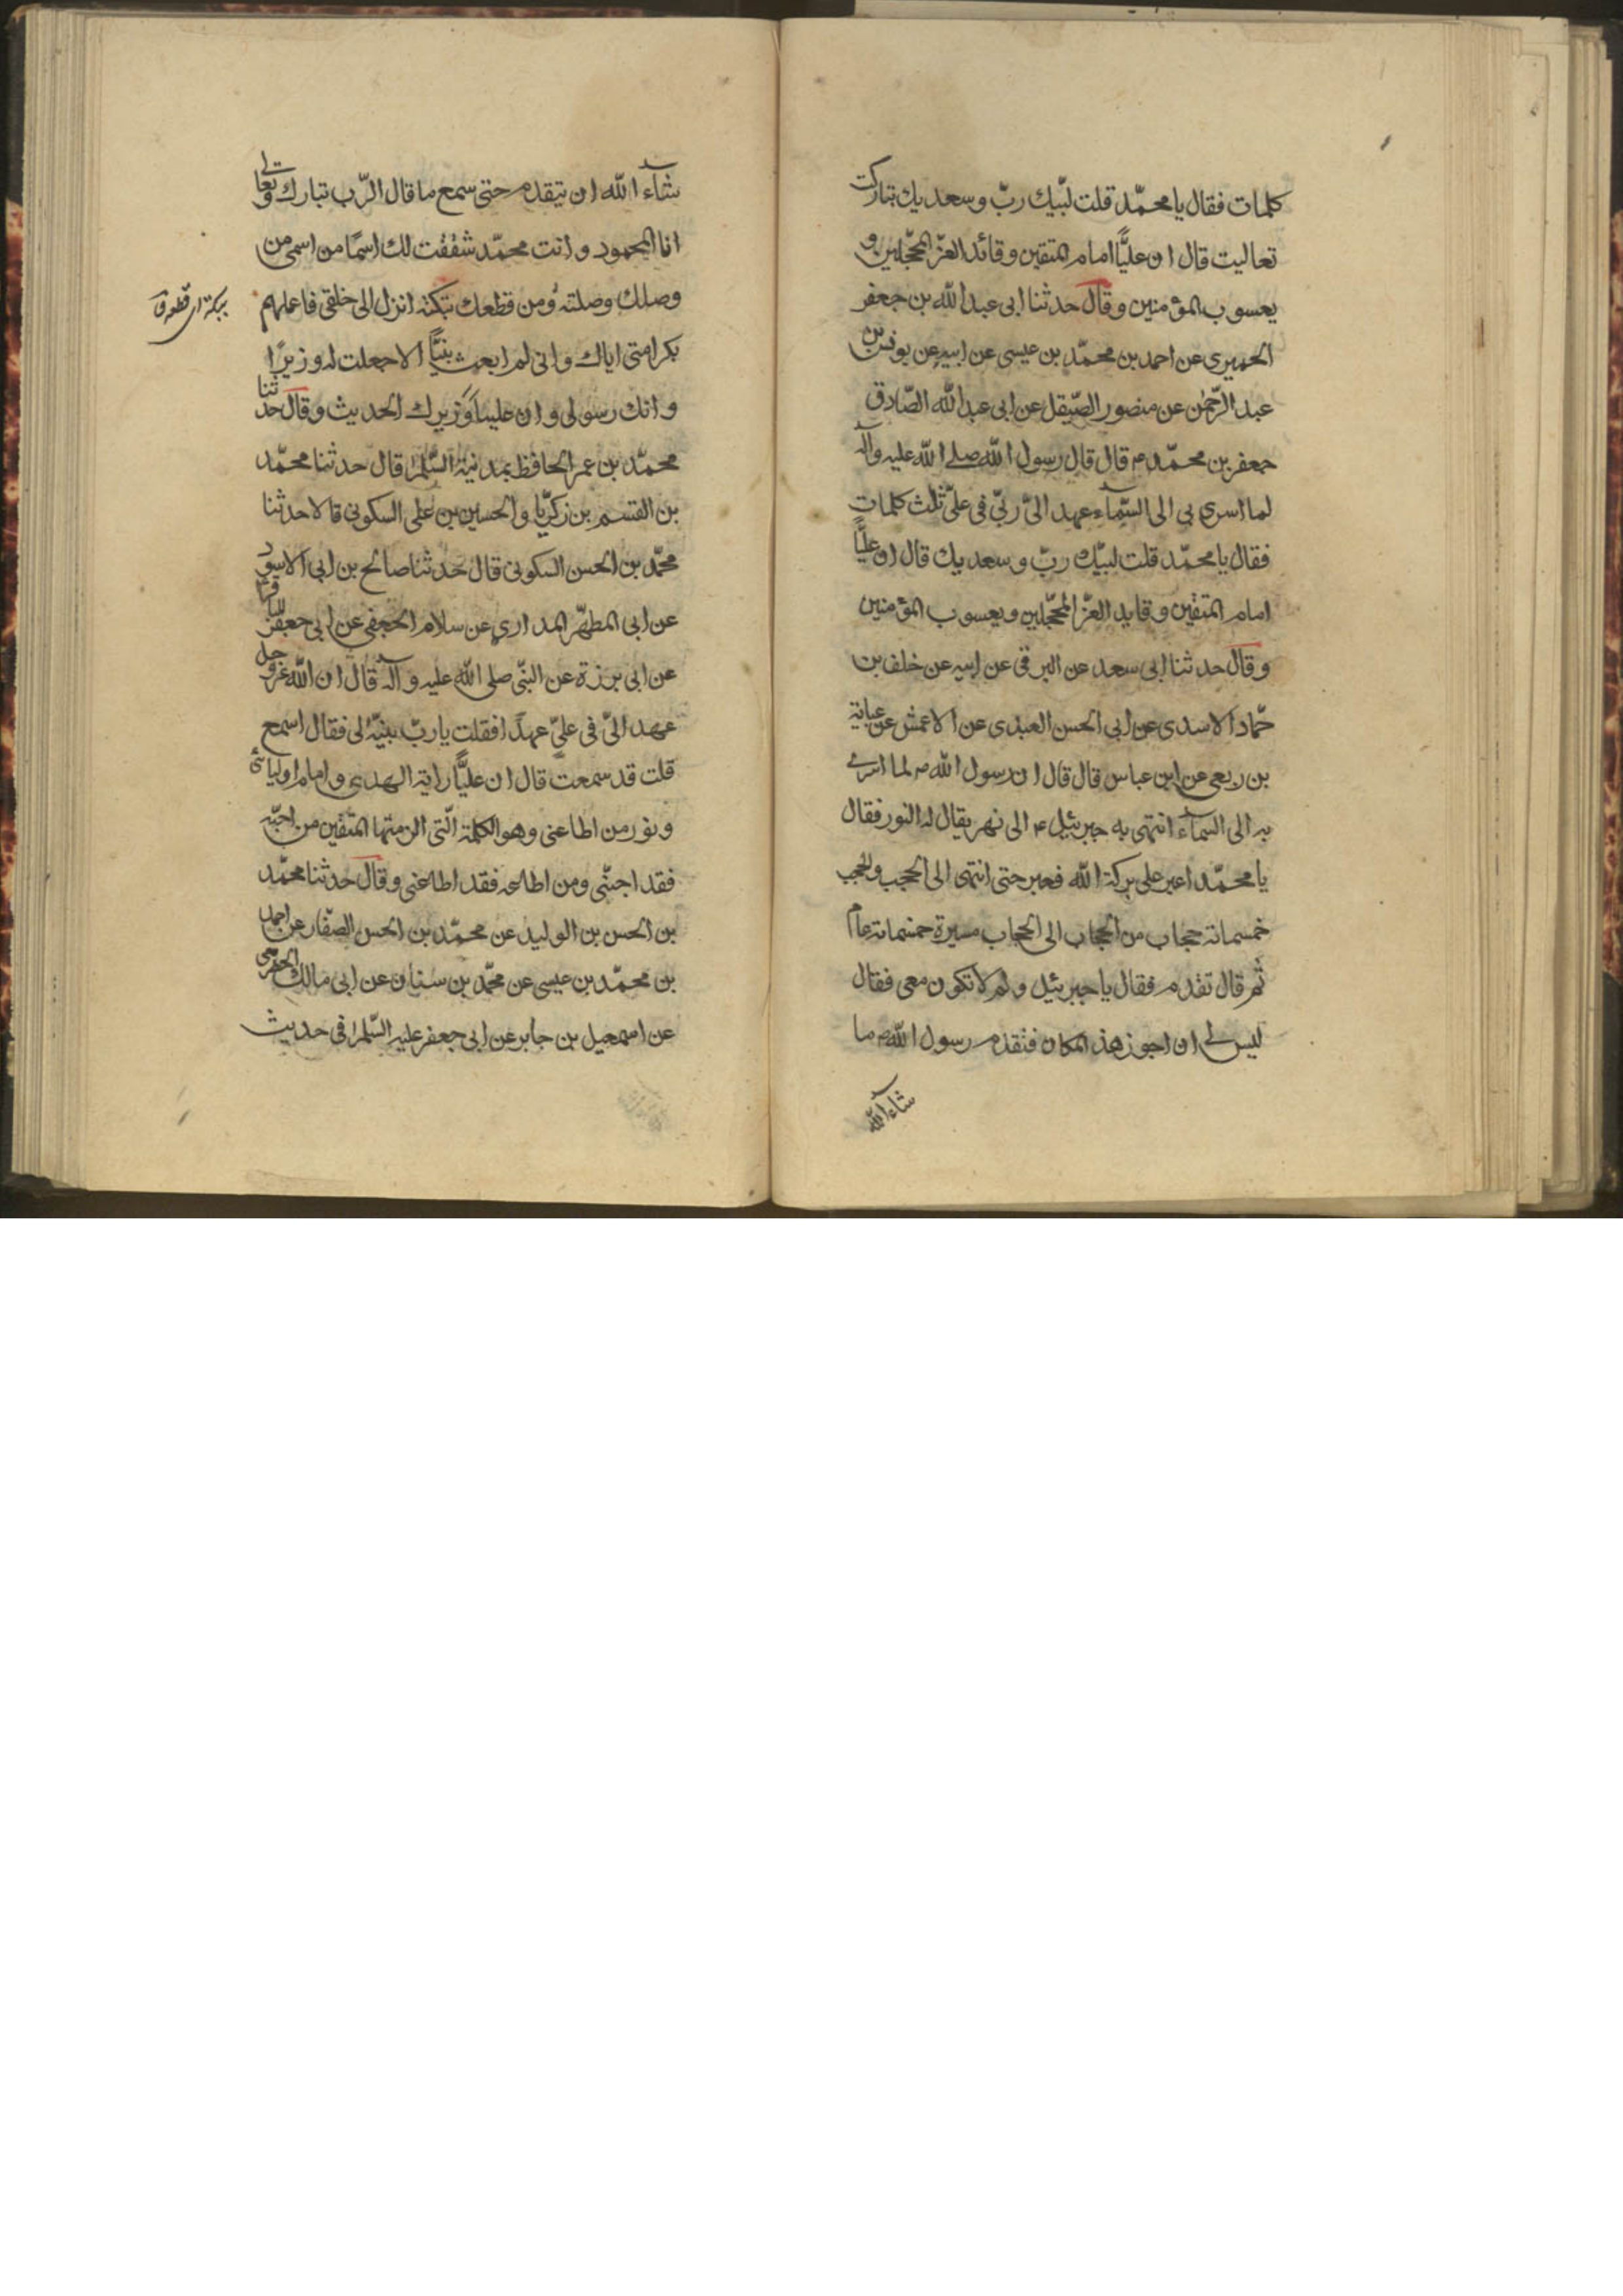 كلمات فقال يا محمّد قلت لبّيك ربّ وسعديك تباركت
تعاليت قال ان عليًّا امام المتقين وقائد الغرّ المحجّلين و
يعسوب المؤمنين وقال حدثنا ابى عبد الله بن جعفر
الحميرى عن احمد بن محمّد بن عيسى عن ابيه عن يونس بن
عبد الرّحمن عن منصور الصّيقل عن ابى عبد الله الصّادق
جعفر بن محمّد م قال قال رسول الله صلى الله عليه وآله
لما اسرى بى الى السّمآء عهد الىّ ربّى فى علىّ ثلث كلمات
فقال يا محمّد قلت لبيّك ربّ وسعديك قال ان عليًّا
امام المتقين وقايد الغرّ المحجّلين ويعسوب المؤمنين
وقال حدثنا ابى سعد عن البرقى عن ابيه عن خلف بن
حمّاد الاسدى عن ابى الحسن العبدى عن الاعمش عن عباية
بن ربعى عن ابن عباس قال قال ان رسول الله ص لما اسرى
به الى السمآء انتهى به جبرئيل ع الى نهر يقال له النور فقال
يا محمّد اعبر على بركة الله فعبر حتى انتهى الى الحجب والحجب
خمسمائة حجاب من الحجاب الى الحجاب مسيرة خمسمائة عام
ثم قال تقدم فقال يا جبرئيل ولم لا تكون معى فقال
ليس لى ان اجوز هذ المكان فتقدم رسول الله ص ما
شاء الله
شآء الله ان يتقدم حتى سمع ما قال الرّب تبارك وتعالى
انا المحمود وانت محمّد شققت لك اسمًا من اسمى من
وصلك وصلته ومن قطعك بتكته انزل الى خلقى فاعلمهم
بكرامتى اياك وانى لم ابعث نبيًّا الا جعلت له وزيرًا
وانك رسولى وان عليا وزيرك الحديث وقال حدثنا
محمّد بن عمر الحافظ بمدنية السّلم قال حدثنا محمّد
بن القسم بن زكريّا والحسين بن على السكونى قالا حدثنا
محمّد بن الحسن السكونى قال حدثنا صالح بن ابى الاسود
عن ابى المطهّر المدارى عن سلام الجعفى عن ابى جعفر الباقر
عن ابى برزة عن النبّى صلى الله عليه وآله قال ان الله عزوجل
عهد الىّ فى علىّ عهدًا فقلت يا ربّ بيّنه لى فقال اسمع
قلت قد سمعت قال ان عليًّا راية الهدى وامام اوليائى
ونور من اطاعنى وهو الكلمة الّتى الزمتها المتّقين من احبّه
فقد احبّنى ومن اطاعه فقد اطاعنى وقال حدثنا محمّد
بن الحسن بن الوليد عن محمّد بن الحسن الصّفار عن احمد
بن محمّد بن عيسى عن محمّد بن سنان عن ابى مالك الحضرمى
عن اسمعيل بن جابر عن ابى جعفر عليه السّلم فى حديث